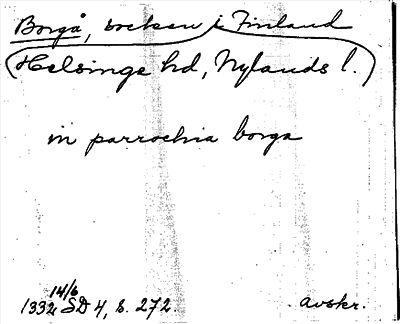 Borgå, socken i Finland
(Helsinge hd, Nylands l.)
in parrochia borga
14/6
1332 SD 4, s. 272. avskr.